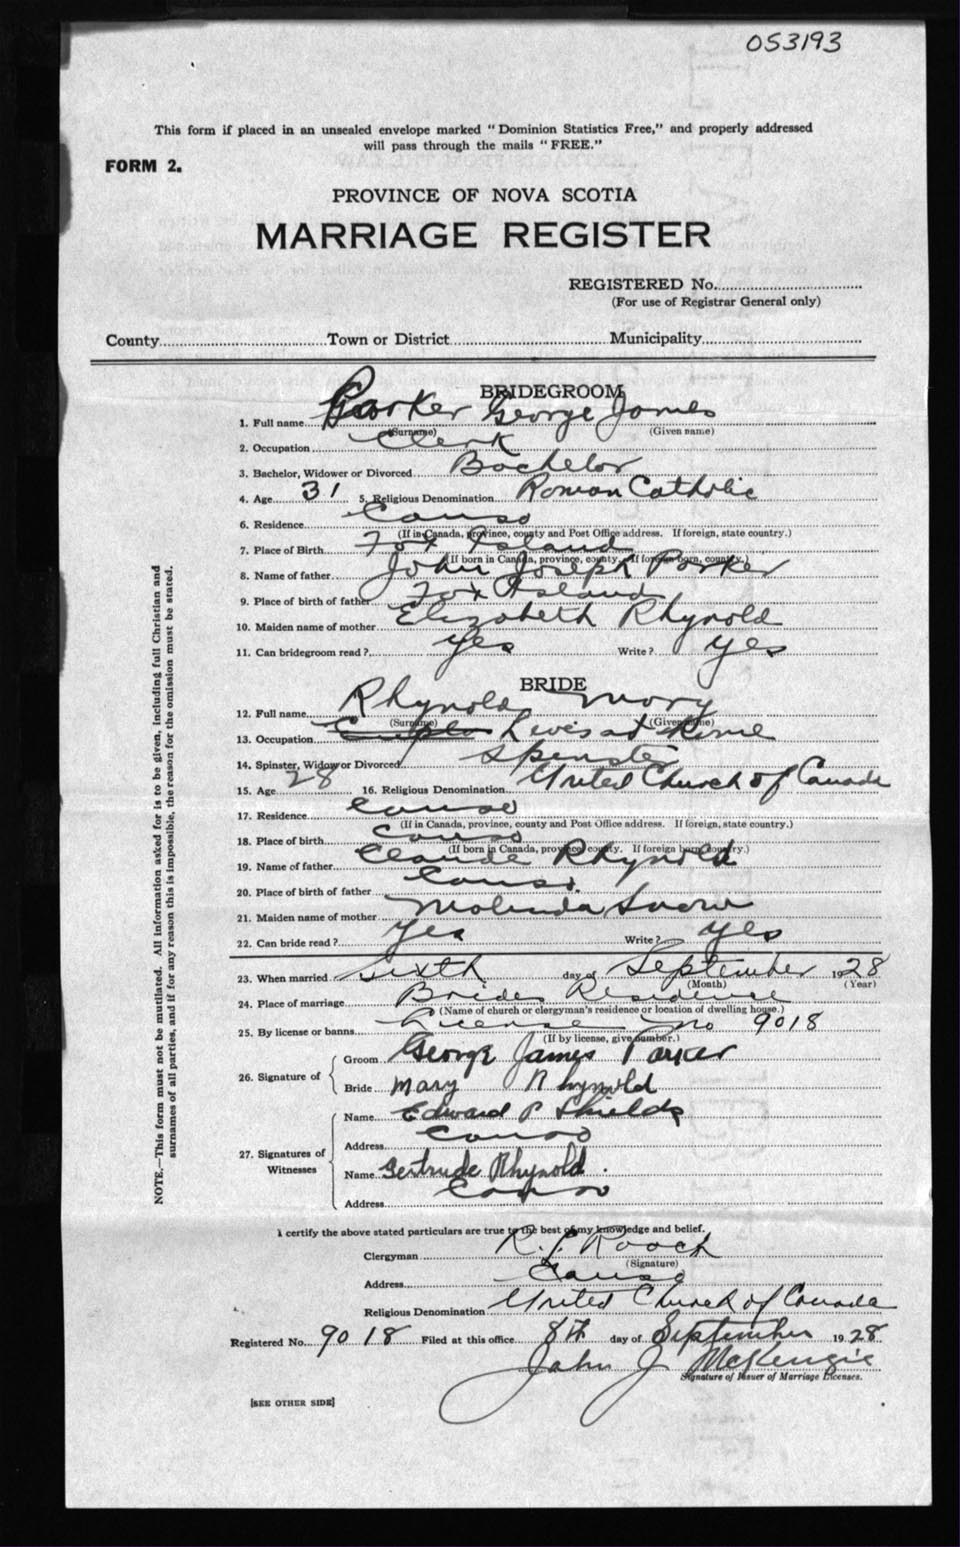 053193
This form if placed in an unsealed envelope marked "Dominion Statistics Free," and properly addressed
will pass through the mails "FREE."
FORM 2.
PROVINCE OF NOVA SCOTIA
MARRIAGE REGISTER
REGISTERED No.
(For use of Registrar General only)
County Town or District Municipality
BRIDEGROOM
1. Full name Parker George James
(Surname) (Given name)
2. Occupation Clerk
3. Bachelor, Widower or Divorced Bachelor
4. Age 31 5. Religious Denomination Roman Catholic
6. Residence Canso
(If in Canada, province, county and Post Office address. If foreign, state country.)
7. Place of Birth Fox Island
(If born in Canada, province, county. If foreign born, country.)
8. Name of father John Joseph Parker
9. Place of birth of father Fox Island
10. Maiden name of mother Elizabeth Rhynold
11. Can bridegroom read? yes Write? yes
BRIDE
12. Full name Rhynold Mary
(Surname) (Given name)
13. Occupation Lives at Home
14. Spinster, Widow or Divorced Spinster
15. Age 28 16. Religious Denomination United Church of Canada
17. Residence Canso
(If in Canada, province, county and Post Office address. If foreign, state country.)
18. Place of birth Canso
(If born in Canada, province, county. If foreign born, country.)
19. Name of father Claude Rhynold
20. Place of birth of father Canso
21. Maiden name of mother Malinda Snow
22. Can bride read? yes Write? yes
23. When married sixth day of September 1928
(Month) (Year)
24. Place of marriage Brides Residence
(Name of church or clergyman's residence or location of dwelling house.)
25. By license or banns License no 9018
(If by license, give number.)
26. Signature of Groom George James Parker
Bride Mary Rhynold
27. Signatures of Witnesses Name Edward P Shields
Address Canso
Name Gertrude Rhynold.
Address Canso
I certify the above stated particulars are true to the best of my knowledge and belief.
Clergyman Roach
(Signature)
Address Canso
Religious Denomination United Church of Canada
Registered No. 9018 Filed at this office 8th day of September 1928
John J. McKenzie
Signature of Issuer of Marriage Licenses.
[SEE OTHER SIDE]
NOTE.—This form must not be mutilated. All information asked for is to be given, including full Christian and
surnames of all parties, and if for any reason this is impossible, the reason for the omission must be stated.